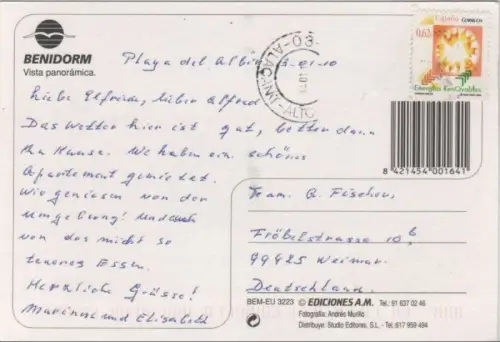 BENIDORM
Vista panorámica.
Playa del Albir 3.01.10
liebe Elfriede, lieber Alfred
Das Wetter hier ist gut, better dann
zu Hause. Wir haben ein schönes
Apartement gemietet.
Wir geniesen von der
Umgebung! Und auch
von das nicht so
teueres Essen.
Herzliche Grüsse!
Marianne und Elisabeth
ALACANT-ALTO
España CORREOS
0,62
Energías Renovables
8 421454 001641
Fam. G. Fischer,
Fröbelstrasse 10b
99425 Weimar.
Deutschland.
BEM-EU 3223 © EDICIONES A.M. Tel.: 91 637 02 46
Fotografía: Andrés Murillo
Distribuye: Studio Editores, S.L. - Tel: 617 959 494